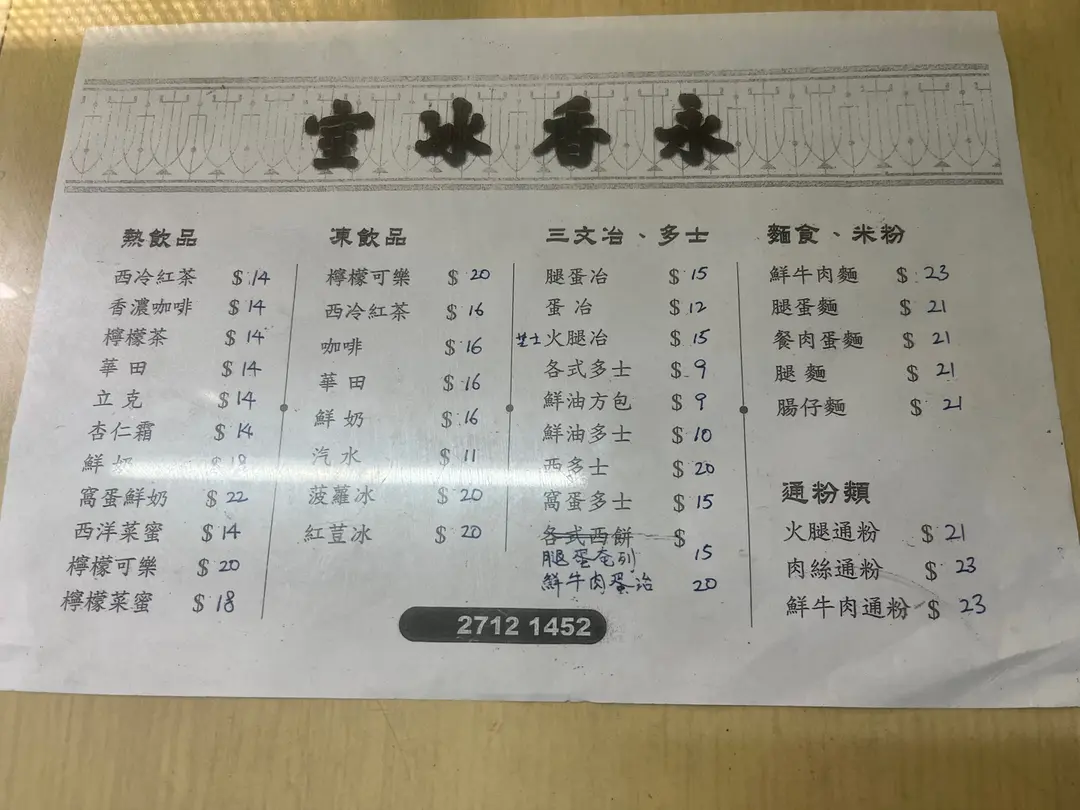 室冰香永
熱飲品
西冷紅茶 $ 14
香濃咖啡 $ 14
檸檬茶 $ 14
華田 $ 14
立克 $ 14
杏仁霜 $ 14
鮮奶 $ 18
窩蛋鮮奶 $ 22
西洋菜蜜 $ 14
檸檬可樂 $ 20
檸檬菜蜜 $ 18
凍飲品
檸檬可樂 $ 20
西冷紅茶 $ 16
咖啡 $ 16
華田 $ 16
鮮奶 $ 16
汽水 $ 11
菠蘿冰 $ 20
紅荳冰 $ 20
三文冶、多士
腿蛋冶 $ 15
蛋冶 $ 12
芝士火腿冶 $ 15
各式多士 $ 9
鮮油方包 $ 9
鮮油多士 $ 10
西多士 $ 20
窩蛋多士 $ 15
各式西餅 $
腿蛋奄列 15
鮮牛肉蛋治 20
麵食、米粉
鮮牛肉麵 $ 23
腿蛋麵 $ 21
餐肉蛋麵 $ 21
腿麵 $ 21
腸仔麵 $ 21
通粉類
火腿通粉 $ 21
肉絲通粉 $ 23
鮮牛肉通粉 $ 23
2712 1452